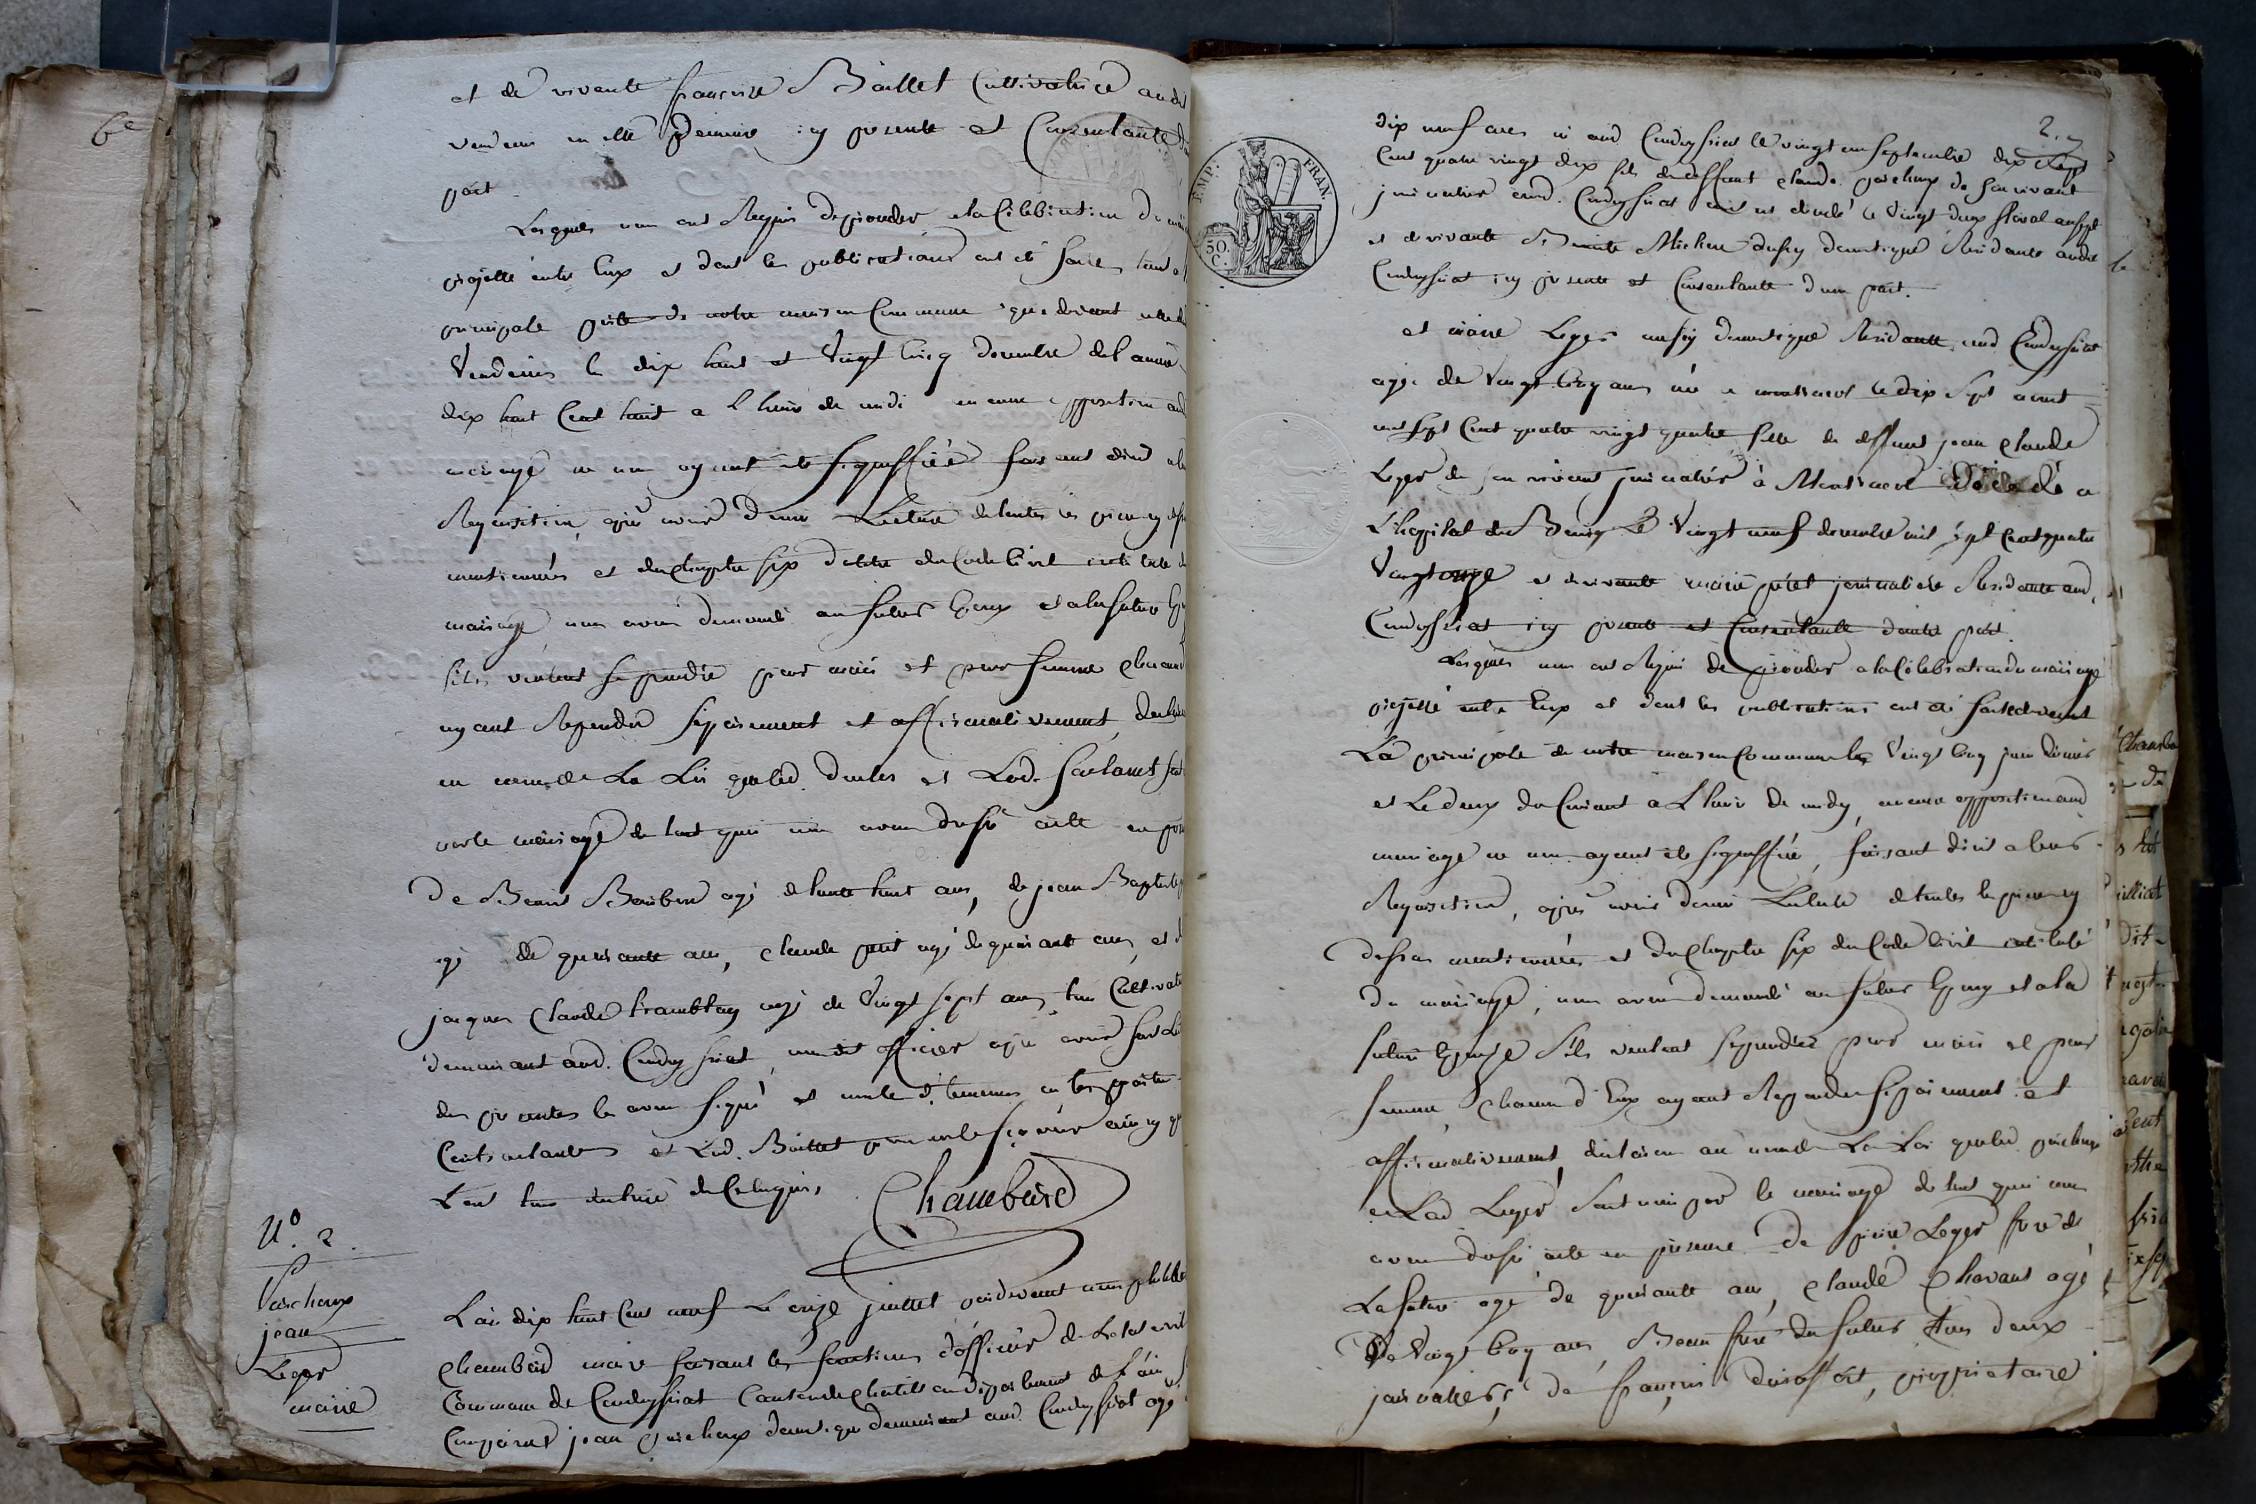 6e
et de vivante françoise Baillet Cultivatrice audit
vendeins en cette derniere icy presente et Consentante d'une
part
Lesquels nous ont Requis de proceder a la Celebration du mariage
projetté entre Eux et dont les publications ont été faites devant la
principale porte de notre maison Commune que devant celle de
Vendeins les dix huit et Vingt Cinq decembre de l'année
dix huit Cent huit a L'heure de midi aucune opposition audit
mariage ne nous ayant été signiffiée faisant droit a leur
Requisition, après avoir donné Lecture de toutes les pieces cy dessus
mentionnées et du Chapitre six du titre du Code Civil intitulé du
mariage nous avons demandé au futur Epoux et a la future Epouse
s'ils veulent se prendre pour mari et pour femme chacun d'eux
ayant Repondu separement et affirmativement, declarons
au nom de La Loi que led. et Lad. sont
unis par le mariage de tout quoi nous avons dressé acte en presence
De Benoit age de trente huit ans, de jean Baptiste
agé de quarante ans, Claude petit agé de quarante ans, et de
jacques Claude tramblay agé de Vingt sept ans tous Cultivateurs
demeurant aud. Condeyssiat, officier après avoir fait Lecture
des presentes les avons signé et non les d. temoins ni les parties
Contractantes et Lad. Baillet pour ne le sçavoir ainsy qu'ils
L'ont tous declaré de Ce Requis,
Chambard
N.° 2.
Paicheux
jean
Leger
marie
L'an dix huit Cent neuf Le onze juillet pardevant nous philibert
Chambard maire faisant les fonctions d'officier de L'etat civil
Commune de Condeyssiat Canton de Chatillon departement de L'ain
Comparut jean paicheux domestique demeurant aud. Condeyssiat agé de
2.
EMP: FRAN.
50. C.
dix neuf ans né aud Condeyssiat le vingt un septembre dix sept
Cent quatre vingt dix fils de deffunt Claude paicheux de son vivant
journalier aud. Condeyssiat mort et decedé le Vingt deux floreal an sept
et de vivante Benoite Michon dufey domestique Residante audit
Condeyssiat icy presente et Consentante d'une part.
et marie Leger aussy domestique Residante aud Condeyssiat
agée de Vingt Cinq ans née a montracol le dix Sept avril
mil sept Cent quatre vingt quatre fille de deffunt jean Claude
Leger de son vivant journalier à Montracol decedé a
L'hopital de Bourg Le Vingt neuf decembre mil sept Cent quatre
Vingt onze et de vivante marie putet journaliere Residante aud.
Condeyssiat icy presente et Consentante d'autre part.
Lesquels nous ont Requis de proceder a la Celebration du mariage
projetté entre Eux et dont les publications ont été faites devant
La principale de notre maison Commune les Vingt Cinq juin dernier
et Le deux du Courant a L'heure de midy, aucune opposition aud
mariage ne nous ayant été signiffiée, faisant droit a leur
Requisition, après avoir donné Lecture de toutes les pieces cy
dessus mentionnées et du Chapitre six du Code Civil intitulé
du mariage, nous avons demandé au futur Epoux et a la
future Epouse s'ils veulent se prendre pour mari et pour
femme, chacun d'Eux ayant Repondu separement et
affirmativement, declarons au nom de La Loi que led. paicheux
et Lad Leger sont unis par le mariage de tout quoi nous
avons dressé acte en presence de pierre Leger frere de
La future agé de quarante ans, Claude Chavant agé
De Vingt Cinq ans, Beau frere du futur tous deux
journaliers, de françois, proprietaire